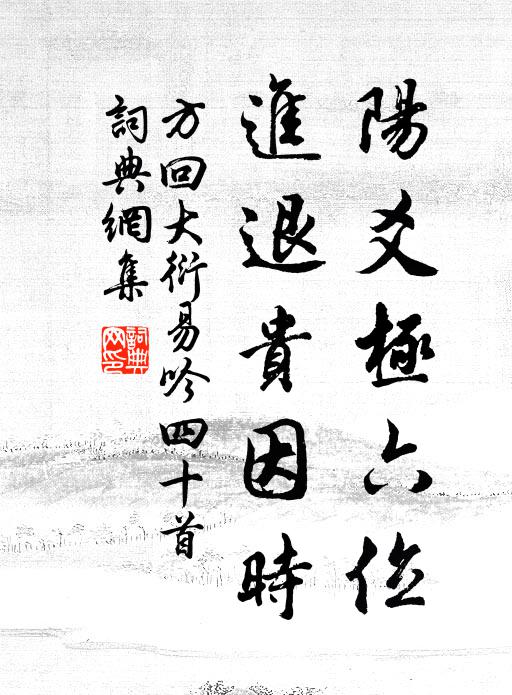 陽爻極六位
進退貴因時
方回大衍易吟四十首
詞典網集
詞典網印